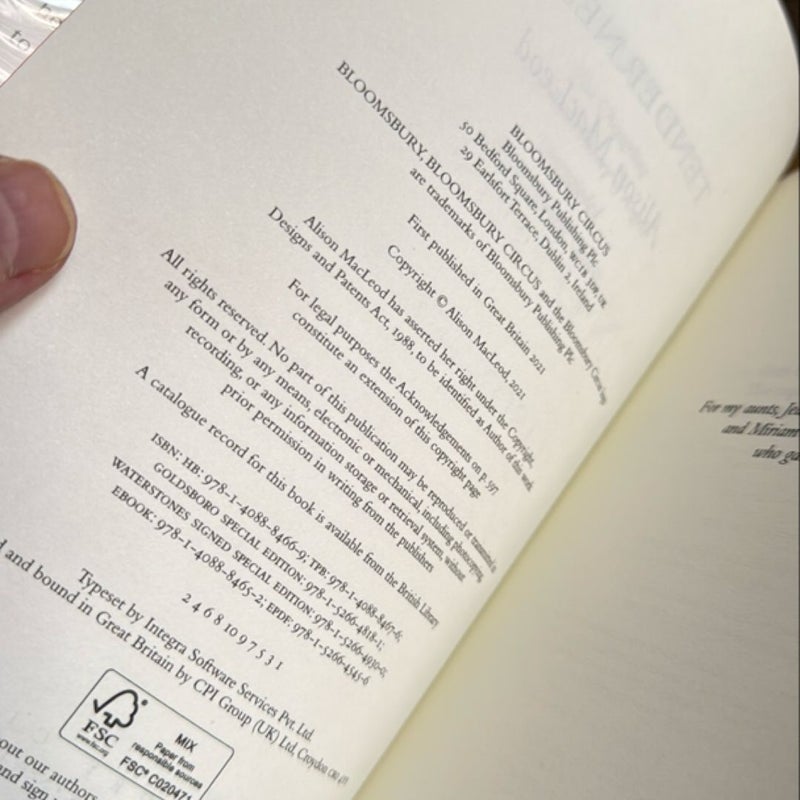 TENDERNESS
Alison MacLeod
BLOOMSBURY CIRCUS
Bloomsbury Publishing Plc
50 Bedford Square, London, WC1B 3DP, UK
29 Earlsfort Terrace, Dublin 2, Ireland
BLOOMSBURY, BLOOMSBURY CIRCUS and the Bloomsbury Circus logo
are trademarks of Bloomsbury Publishing Plc
First published in Great Britain 2021
Copyright © Alison MacLeod, 2021
Alison MacLeod has asserted her right under the Copyright,
Designs and Patents Act, 1988, to be identified as Author of this work
For legal purposes the Acknowledgements on p. 597
constitute an extension of this copyright page
All rights reserved. No part of this publication may be reproduced or transmitted in
any form or by any means, electronic or mechanical, including photocopying,
recording, or any information storage or retrieval system, without
prior permission in writing from the publishers
A catalogue record for this book is available from the British Library
ISBN: HB: 978-1-4088-8466-9; TPB: 978-1-4088-8467-6;
GOLDSBORO SPECIAL EDITION: 978-1-5266-4818-1;
WATERSTONES SIGNED SPECIAL EDITION: 978-1-5266-4930-0;
EBOOK: 978-1-4088-8465-2; EPDF: 978-1-5266-4545-6
2 4 6 8 10 9 7 5 3 1
Typeset by Integra Software Services Pvt. Ltd.
and bound in Great Britain by CPI Group (UK) Ltd, Croydon CR0 4YY
FSC
www.fsc.org
MIX
Paper from
responsible sources
FSC® C020471
out our authors
and sign
For my aunts,
and Miriam
who